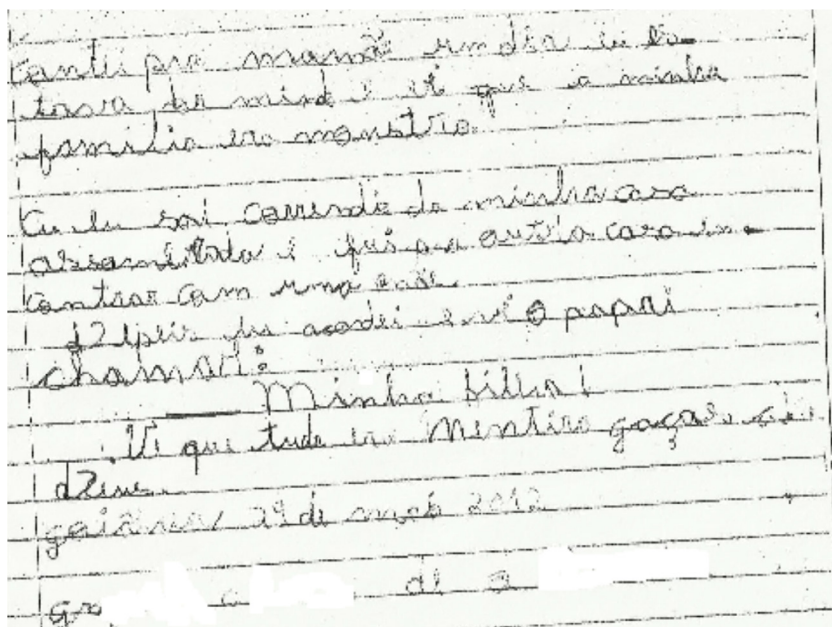 contei pra mamã um dia eu es
tava do mind e vi que a minha
familia era monstro.
Eu eu sai correndo da minha casa
assombrada e fui pra outra casa en-
contrar com uma
Depois eu acordei e vi o papai
chamar:
— Minha filha!
Vi que tudo era mentira graças a
Deus.
goiânia 29 de maio 2012